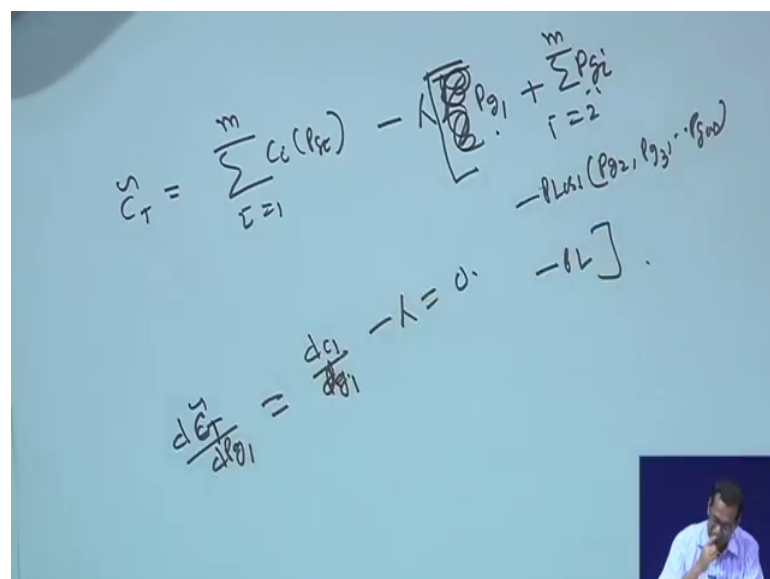 C̃_T = \sum_{i=1}^{m} C_i(P_{gi}) - λ[P_{g1} + \sum_{i=2}^{m} P_{gi}
- P_{Loss}(P_{g2}, P_{g3}, ... P_{gm})
- P_L].
\frac{dC̃_T}{dP_{g1}} = \frac{dC_1}{dP_{g1}} - λ = 0.